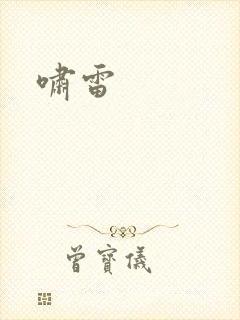 啸雷
曾寶儀